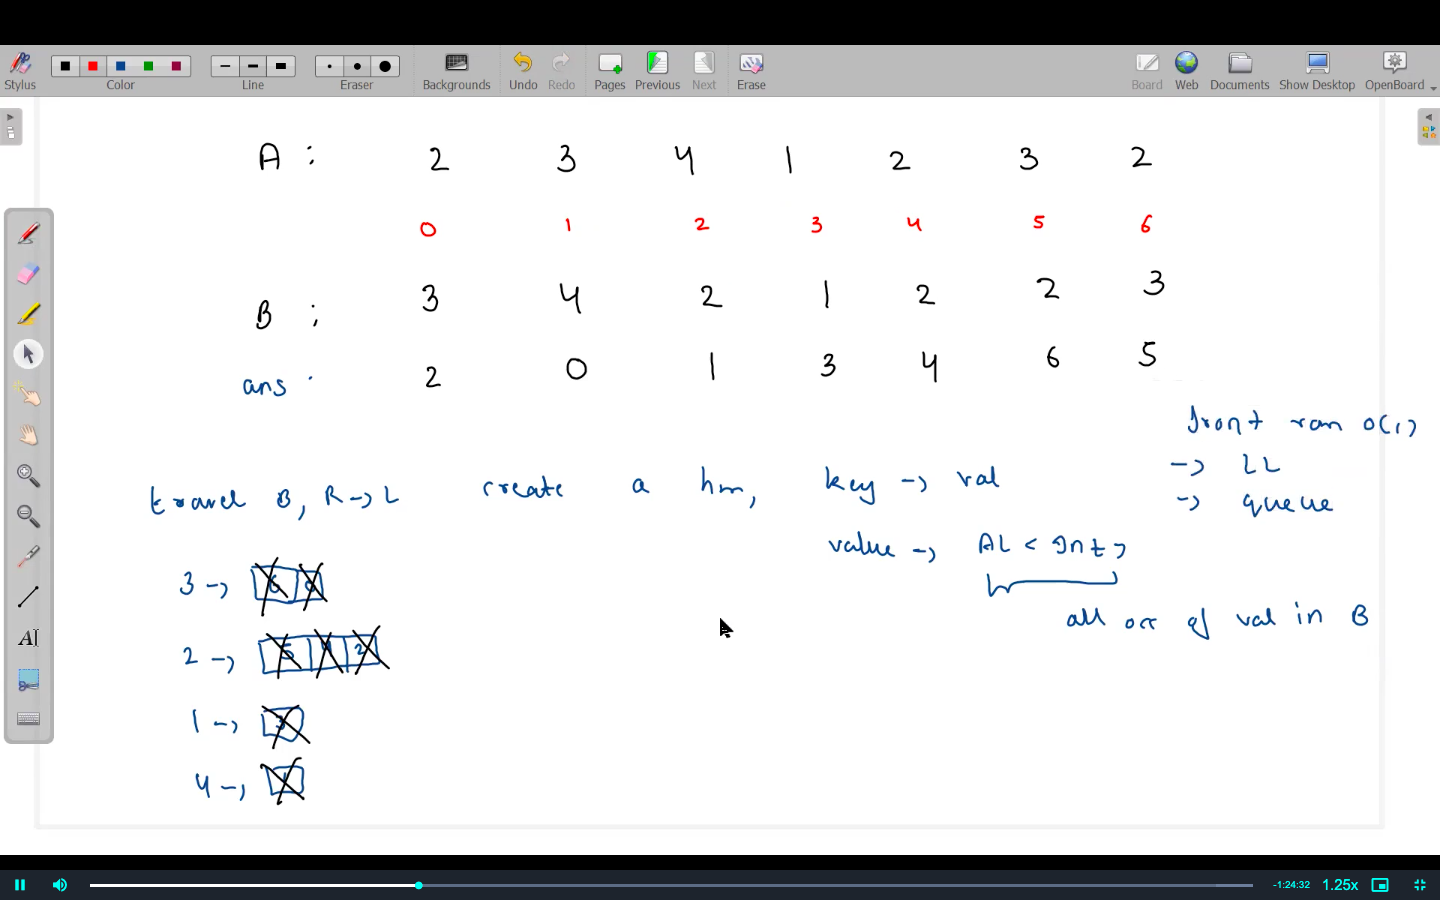 Stylus Color Line Eraser Backgrounds Undo Redo Pages Previous Next Erase Board Web Documents Show Desktop OpenBoard
A : 2 3 4 1 2 3 2
0 1 2 3 4 5 6
B : 3 4 2 1 2 2 3
ans : 2 0 1 3 4 6 5
front rem O(1)
-> LL
-> queue
travel B, R -> L create a hm, key -> val
value -> AL < Int >
all occ of val in B
3 -> 6 0
2 -> 5 4 2
1 -> 3
4 -> 1
AI
-1:24:32 1.25x